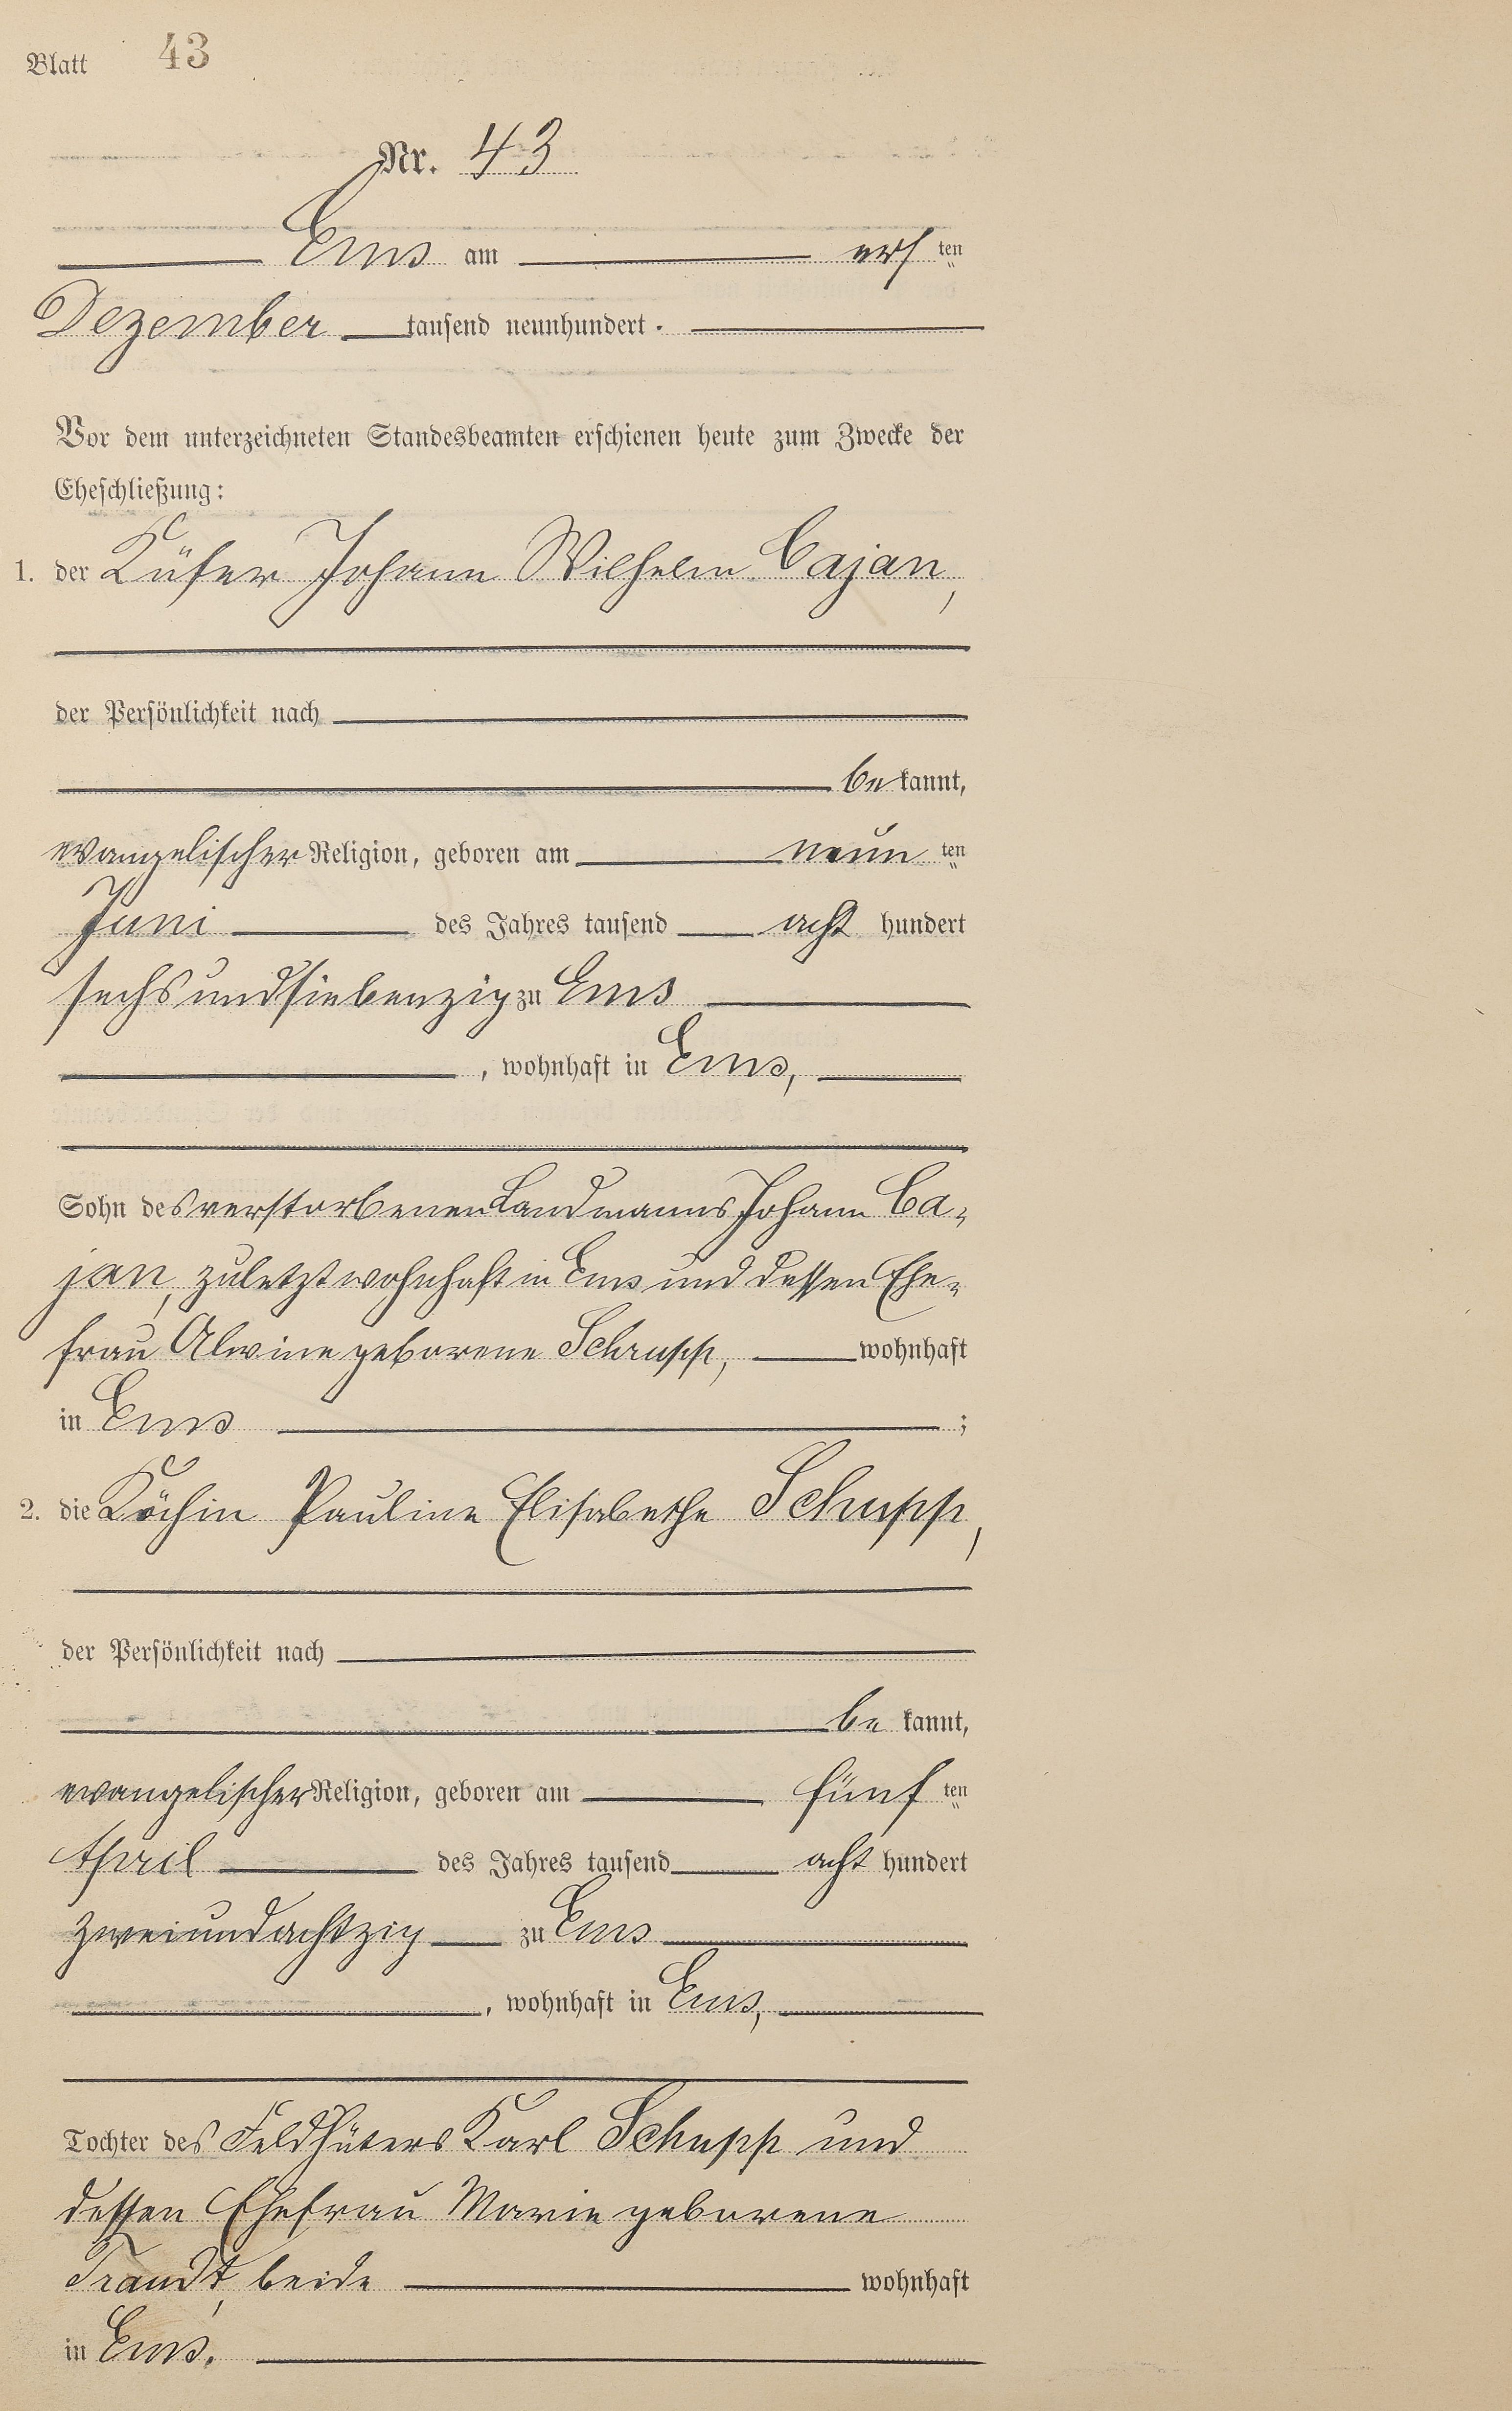 Blatt 43
Nr. 43
Ems am ersten
Dezember tausend neunhundert.
Vor dem unterzeichneten Standesbeamten erschienen heute zum Zwecke der
Eheschließung:
1. der Küfer Johann Wilhelm Cajan,
der Persönlichkeit nach
bekannt,
evangelischer Religion, geboren am neunten
Juni des Jahres tausend acht hundert
sechsundsiebenzig zu Ems
, wohnhaft in Ems,
Sohn des verstorbenen Landmanns Johann Ca-
jan, zuletzt wohnhaft in Ems und dessen Ehe-
frau Alwine geborene Schrupp, wohnhaft
in Ems ;
2. die Köchin Pauline Elisabethe Schupp,
der Persönlichkeit nach
be kannt,
evangelischer Religion, geboren am fünften
April des Jahres tausend acht hundert
zweiundachtzig zu Ems
, wohnhaft in Ems,
Tochter des Feldhüters Karl Schupp und
dessen Ehefrau Marie geborene
beide wohnhaft
in Ems.